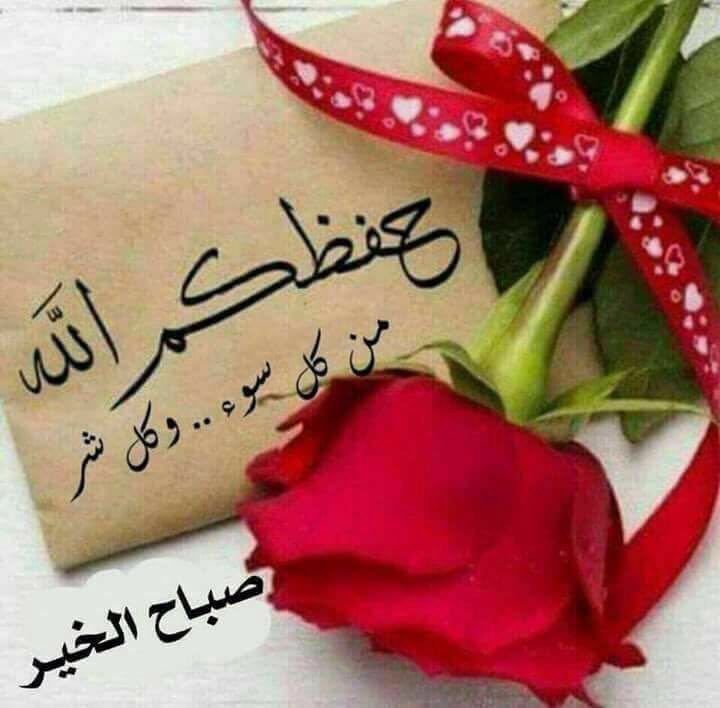 حفظكم الله
من كل سوء .. وكل شر
صباح الخير